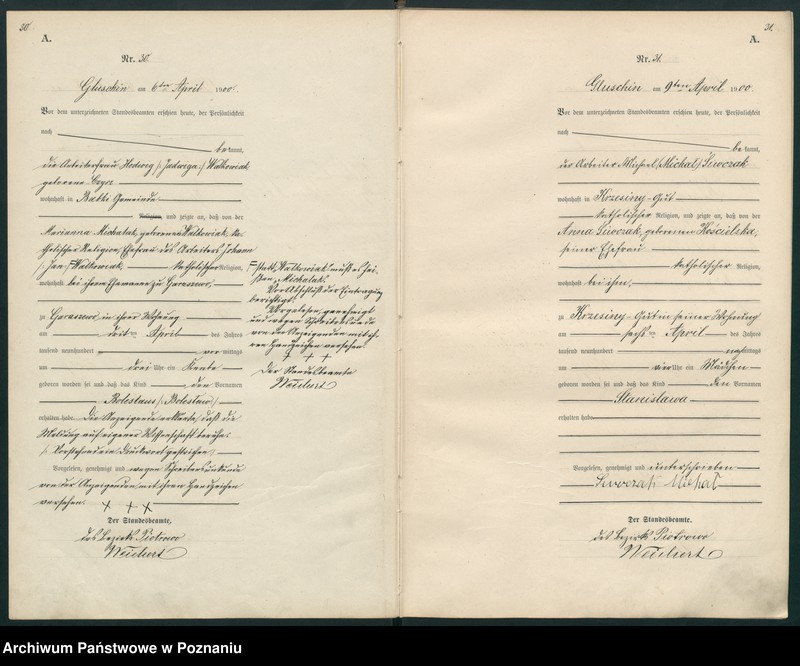 30.
A.
Nr. 30.
Gluschin am 6ten April 1900.
Vor dem unterzeichneten Standesbeamten erschien heute, der Persönlichkeit
nach
bekannt,
die Arbeiterfrau Hedwig (Jadwiga) Walkowiak
geborene
wohnhaft in Babki Gemeinde
Religion, und zeigte an, daß von der
Marianna Michalak, geborenen Walkowiak, ka-
tholischer Religion, Ehefrau des Arbeiters Johann
(Jan) Walkowiak, katholischer Religion,
wohnhaft bei ihrem Ehemanne zu Garaszewo,
zu Garaszewo in ihrer Wohnung
am dritten April des Jahres
tausend neunhundert vormittags
um drei Uhr ein Knabe
geboren worden sei und daß das Kind den Vornamen
Boleslaus (Bolesław)
erhalten habe. Die Anzeigende erklärte, daß die
Meldung auf eigener Wissenschaft beruhe.
(Vorstehend ein Druckwort gestrichen)
Vorgelesen, genehmigt und wegen Schreibensunkunde
von der Anzeigenden mit ihrem Handzeichen
versehen. + + +
Der Standesbeamte,
des Bezirks Piotrowo
Weichert
statt "Walkowiak" muß es hei-
ßen "Michalak".
Vor Abschluß der Eintragung
berichtigt.
Vorgelesen, genehmigt
und wegen Schreibensunkunde
von der Anzeigenden mit ih-
rem Handzeichen versehen.
+ + +
Der Standesbeamte
Weichert
31.
A.
Nr. 31.
Gluschin am 9ten April 1900.
Vor dem unterzeichneten Standesbeamten erschien heute, der Persönlichkeit
nach
bekannt,
der Arbeiter Michael (Michał) Siwczak
wohnhaft in Krzesiny-Gut
katholischer Religion, und zeigte an, daß von der
Anna Siwczak, geborenen Kościelska,
seiner Ehefrau
katholischer Religion,
wohnhaft bei ihm,
zu Krzesiny-Gut in seiner Wohnung
am sechsten April des Jahres
tausend neunhundert nachmittags
um vier Uhr ein Mädchen
geboren worden sei und daß das Kind den Vornamen
Stanisława
erhalten habe
Vorgelesen, genehmigt und unterschrieben
Siwczak Michał
Der Standesbeamte,
des Bezirks Piotrowo
Weichert
Archiwum Państwowe w Poznaniu